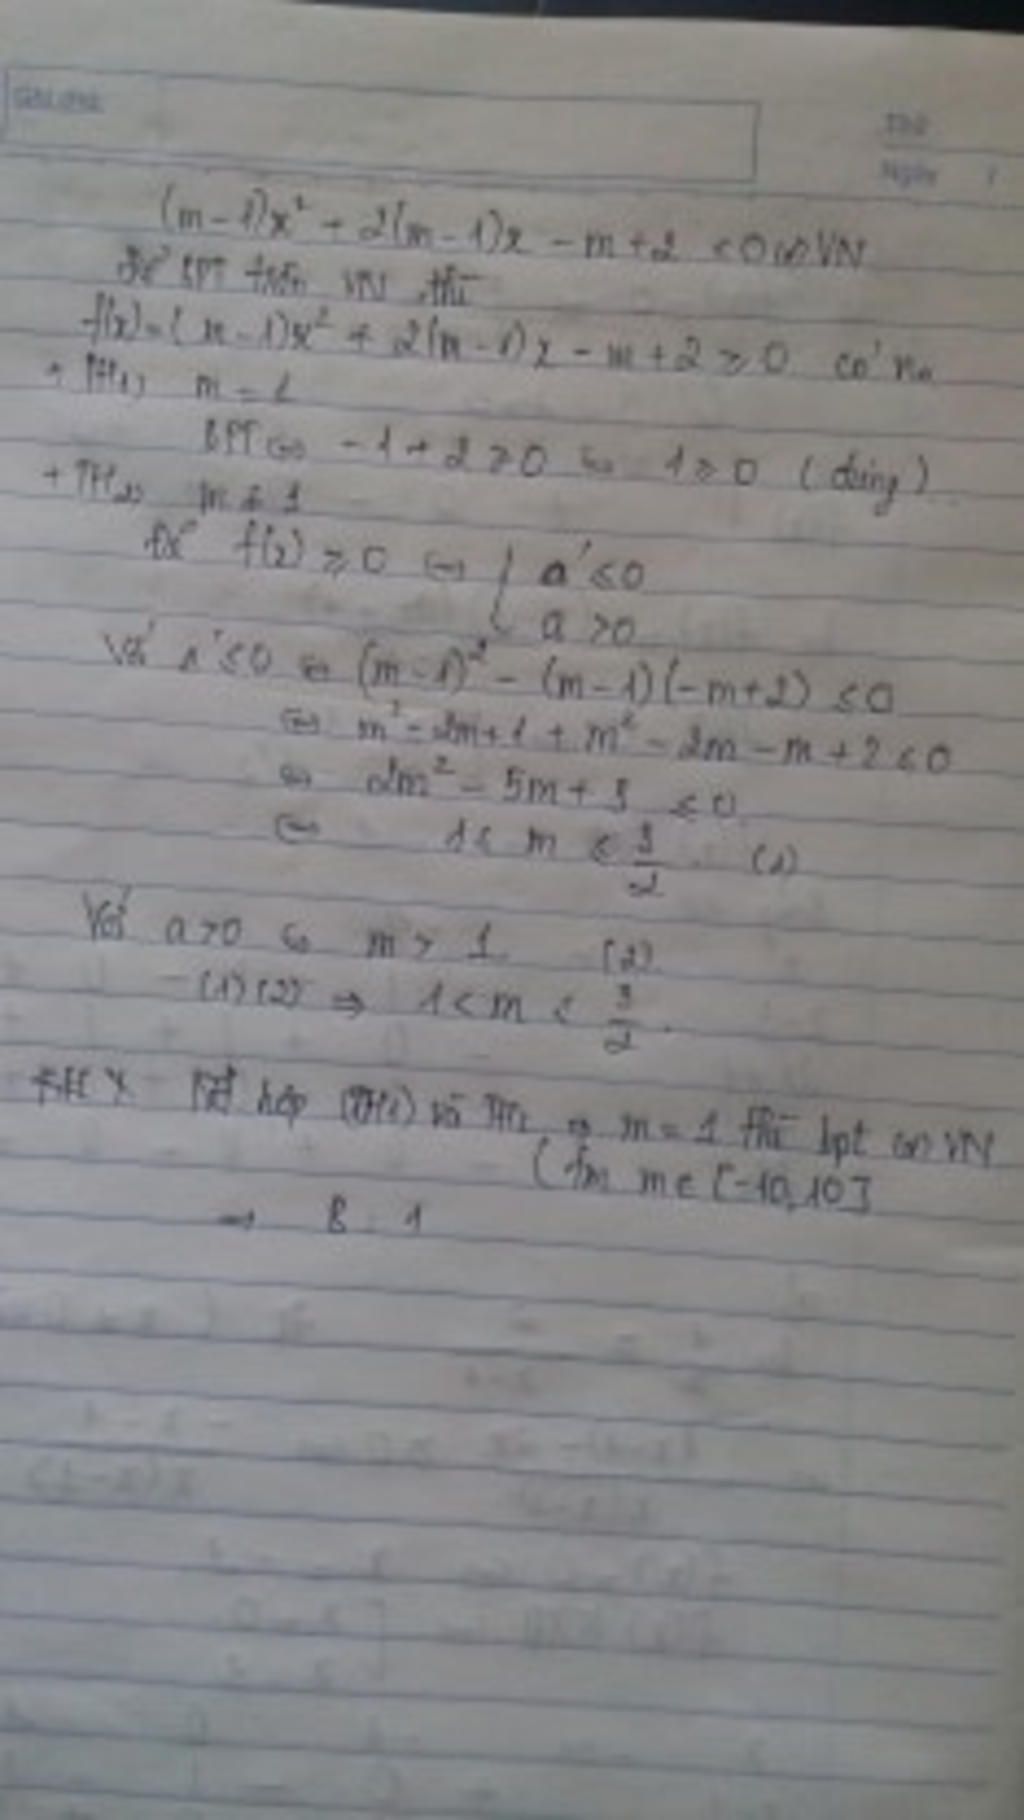 Thứ
Ngày /
(m-1)x² + 2(m-1)x - m+2 < 0 có VN
Để BPT trên VN thì
f(x) = (m-1)x² + 2(m-1)x - m+2 ≥ 0 có n₀
+ TH1) m = 1
BPT ⇔ -1+2 ≥ 0 ⇔ 1 ≥ 0 (đúng)
+ TH2) m ≠ 1
Để f(x) ≥ 0 ⇔ { Δ' ≤ 0
a > 0
Với Δ' ≤ 0 ⇔ (m-1)² - (m-1)(-m+2) ≤ 0
⇔ m² - 2m+1 + m² - 2m - m + 2 ≤ 0
⇔ 2m² - 5m + 3 ≤ 0
⇔ 1 ≤ m ≤ 3/2 (1)
Với a > 0 ⇔ m > 1 (2)
(1) (2) ⇒ 1 < m ≤ 3/2
hợp (TH1) và TH2 ⇒ m = 1 thì bpt có VN
(tm m ∈ [-10, 10]
→ B : 1